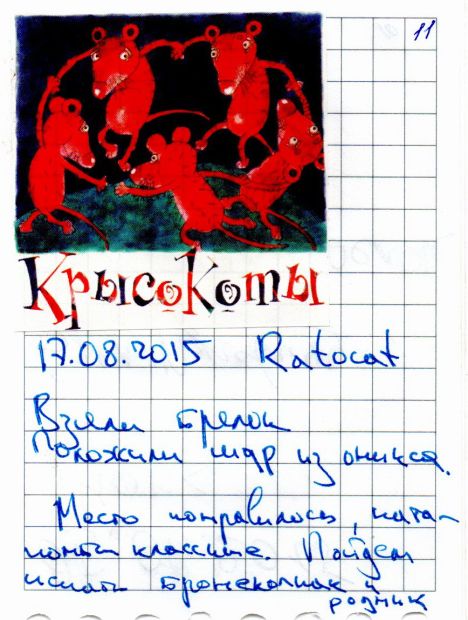 11
КрысоКоты
17.08.2015 Ratocat
Взяли брелок
Положили шар из оникса.
Место понравилось, ката-
компы классные. Пойдем
искать бронеколпак и
родник